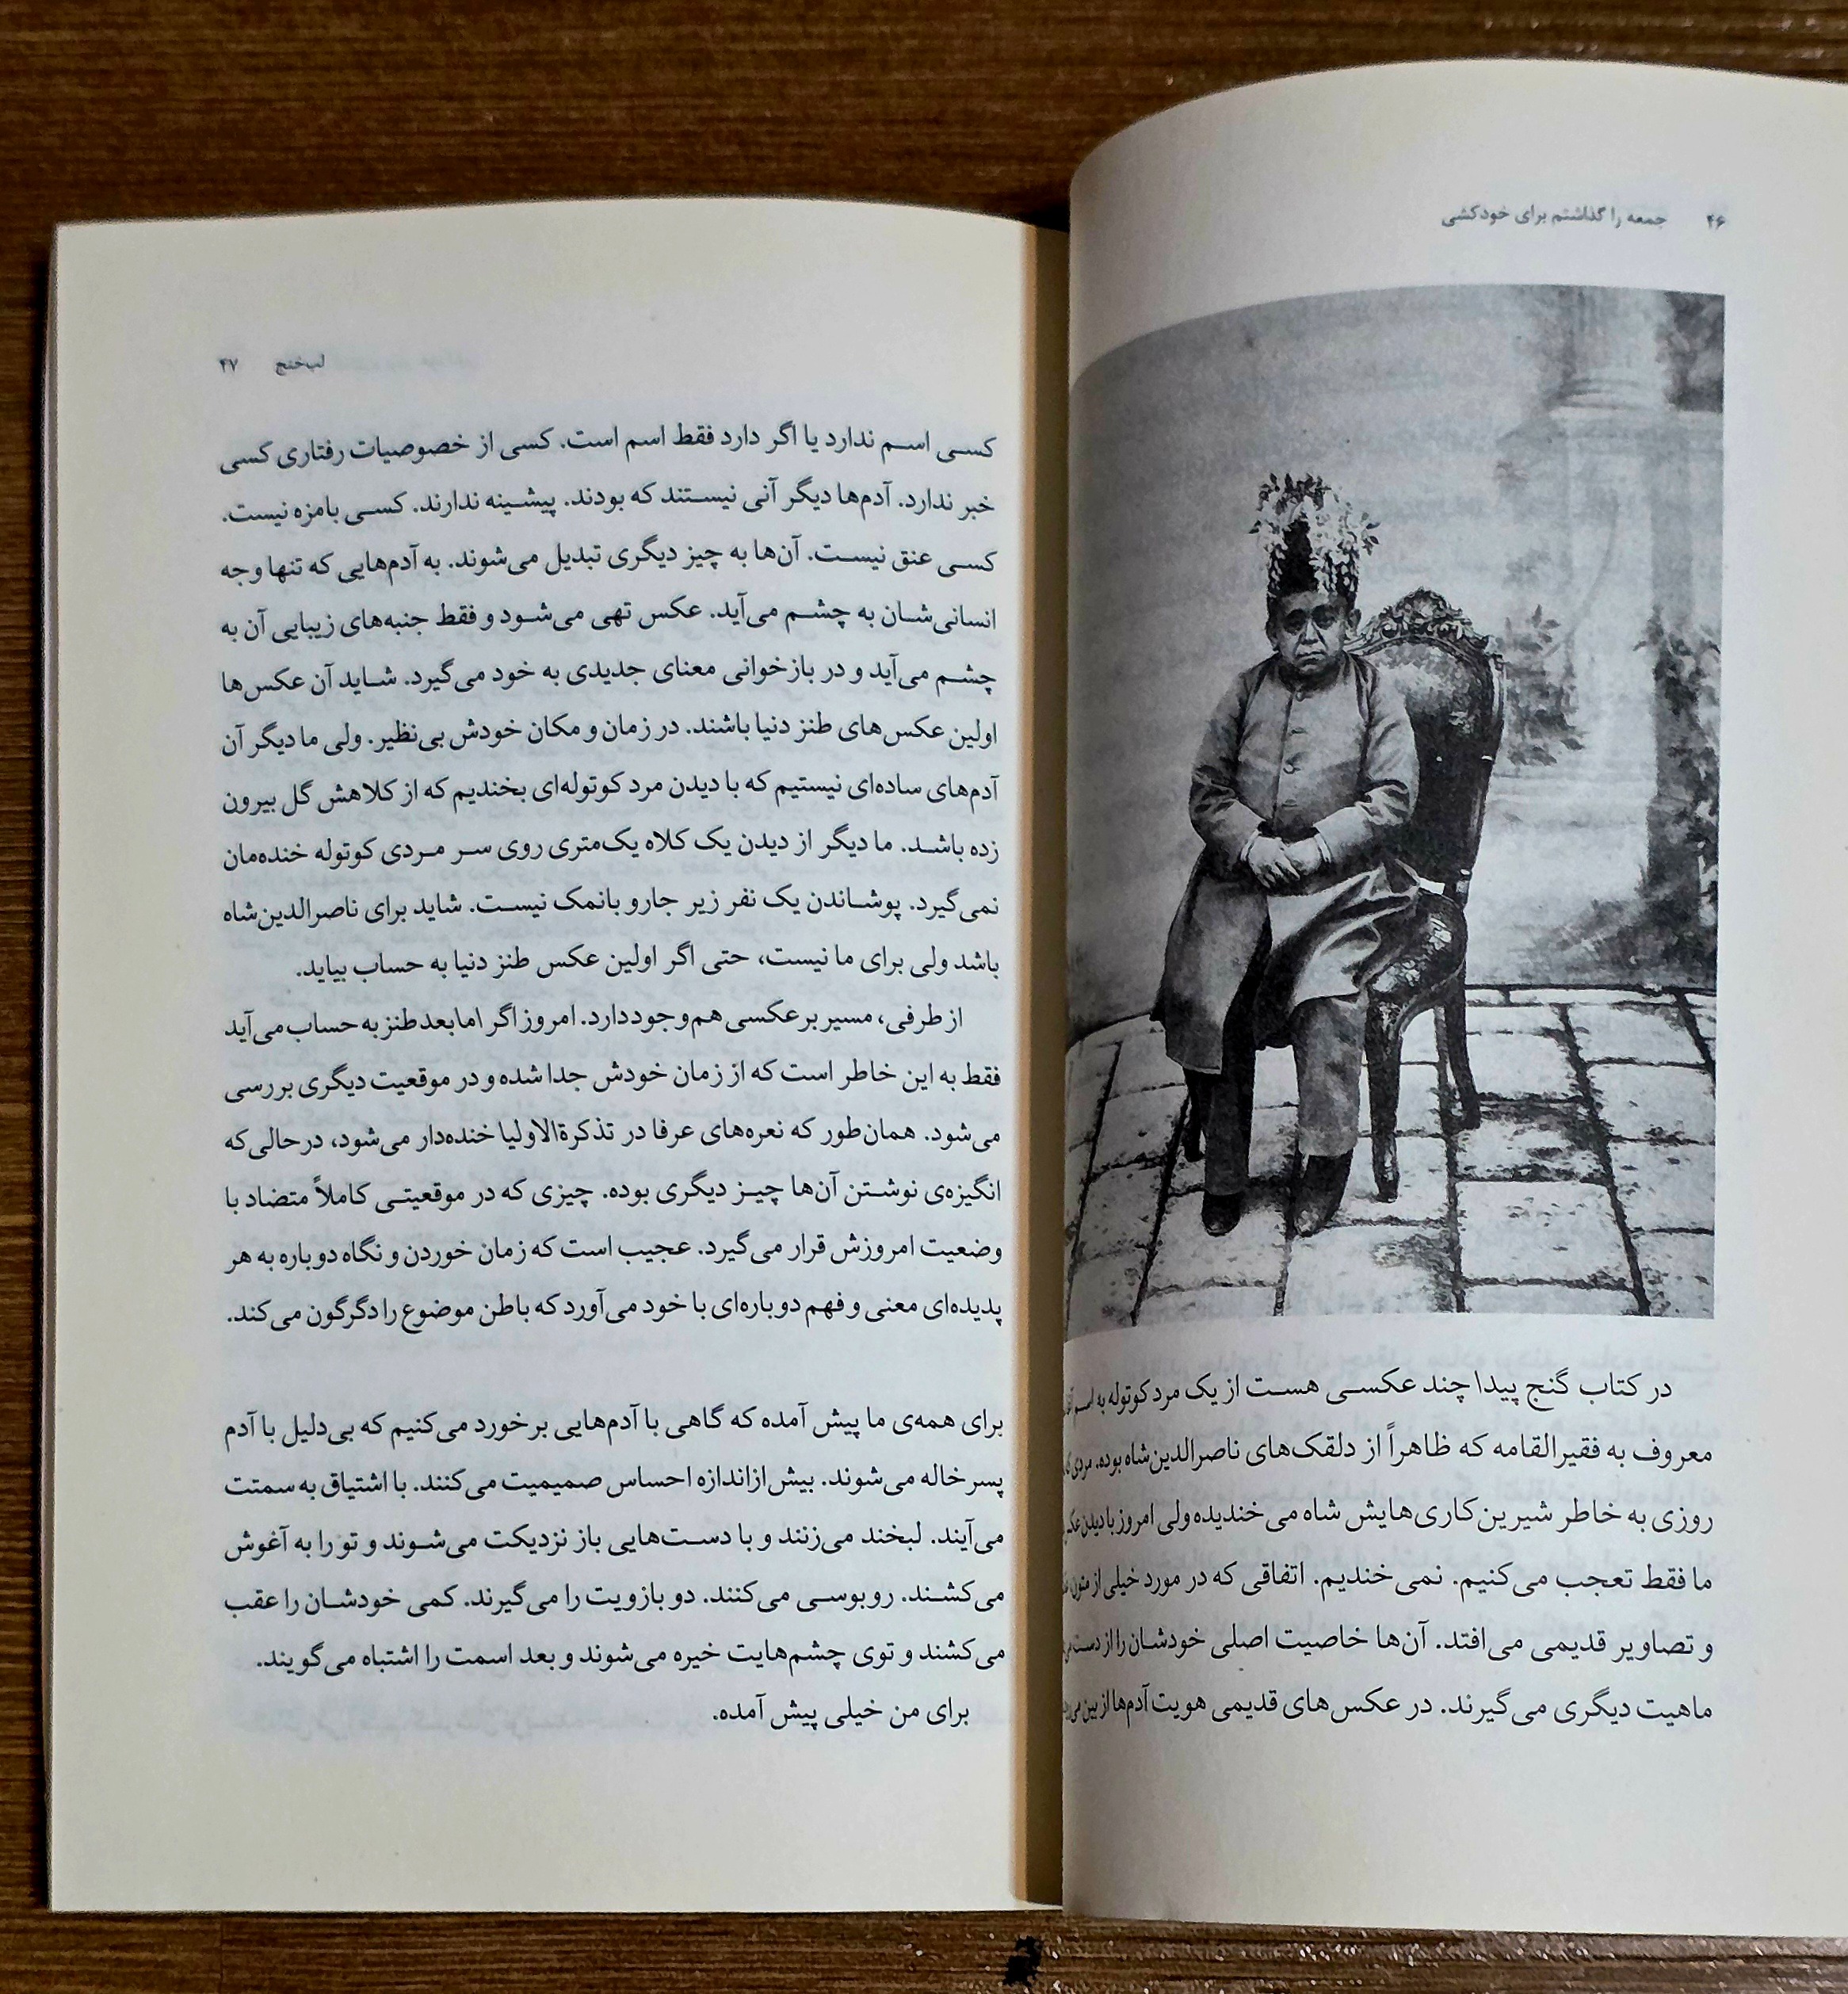 ۴۶ جمعه را گذاشتم برای خودکشی
در کتاب گنج پیدا چند عکسی هست از یک مرد کوتوله به اسم
معروف به فقیرالقامه که ظاهراً از دلقک‌های ناصرالدین‌شاه بوده. مردی که
روزی به خاطر شیرین‌کاری‌هایش شاه می‌خندیده ولی امروز با دیدن
ما فقط تعجب می‌کنیم. نمی‌خندیم. اتفاقی که در مورد خیلی از متون
و تصاویر قدیمی می‌افتد. آن‌ها خاصیت اصلی خودشان را از دست
ماهیت دیگری می‌گیرند. در عکس‌های قدیمی هویت آدم‌ها از بین
لب‌خنج ۴۷
کسی اسم ندارد یا اگر دارد فقط اسم است. کسی از خصوصیات رفتاری کسی
خبر ندارد. آدم‌ها دیگر آنی نیستند که بودند. پیشینه ندارند. کسی بامزه نیست.
کسی عنق نیست. آن‌ها به چیز دیگری تبدیل می‌شوند. به آدم‌هایی که تنها وجه
انسانی‌شان به چشم می‌آید. عکس تهی می‌شود و فقط جنبه‌های زیبایی آن به
چشم می‌آید و در بازخوانی معنای جدیدی به خود می‌گیرد. شاید آن عکس‌ها
اولین عکس‌های طنز دنیا باشند. در زمان و مکان خودش بی‌نظیر. ولی ما دیگر آن
آدم‌های ساده‌ای نیستیم که با دیدن مرد کوتوله‌ای بخندیم که از کلاهش گل بیرون
زده باشد. ما دیگر از دیدن یک کلاه یک‌متری روی سر مردی کوتوله خنده‌مان
نمی‌گیرد. پوشاندن یک نفر زیر جارو بانمک نیست. شاید برای ناصرالدین‌شاه
باشد ولی برای ما نیست، حتی اگر اولین عکس طنز دنیا به حساب بیاید.
از طرفی، مسیر برعکسی هم وجود دارد. امروز اگر امابعد طنز به حساب می‌آید
فقط به این خاطر است که از زمان خودش جدا شده و در موقعیت دیگری بررسی
می‌شود. همان‌طور که نعره‌های عرفا در تذکرةالاولیا خنده‌دار می‌شود، درحالی‌که
انگیزه‌ی نوشتن آن‌ها چیز دیگری بوده. چیزی که در موقعیتی کاملاً متضاد با
وضعیت امروزش قرار می‌گیرد. عجیب است که زمان خوردن و نگاه دوباره به هر
پدیده‌ای معنی و فهم دوباره‌ای با خود می‌آورد که باطن موضوع را دگرگون می‌کند.
برای همه‌ی ما پیش آمده که گاهی با آدم‌هایی برخورد می‌کنیم که بی‌دلیل با آدم
پسرخاله می‌شوند. بیش‌ازاندازه احساس صمیمیت می‌کنند. با اشتیاق به سمتت
می‌آیند. لبخند می‌زنند و با دست‌هایی باز نزدیکت می‌شوند و تو را به آغوش
می‌کشند. روبوسی می‌کنند. دو بازویت را می‌گیرند. کمی خودشان را عقب
می‌کشند و توی چشم‌هایت خیره می‌شوند و بعد اسمت را اشتباه می‌گویند.
برای من خیلی پیش آمده.